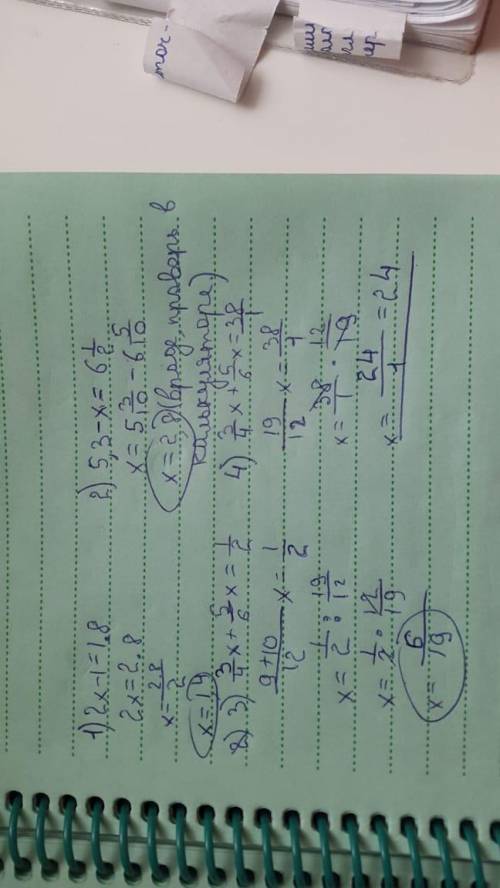 1) 2x-1=1,8
2x=2,8
x=2,8/2
x=1,9
2) 5,3-x=6 1/2
x=5 3/10-6 5/10
x=2,8 (вроде, проверь в
калькуляторе)
3) 3/4 x+5/6 x=1/2
9+10/12 x=1/2
x=1/2:19/12
x=1/2·12/19
x=6/19
4) 3/4 x+5/6 x=38/1
19/12 x=38/1
x=38/1·12/19
x=24/1=24